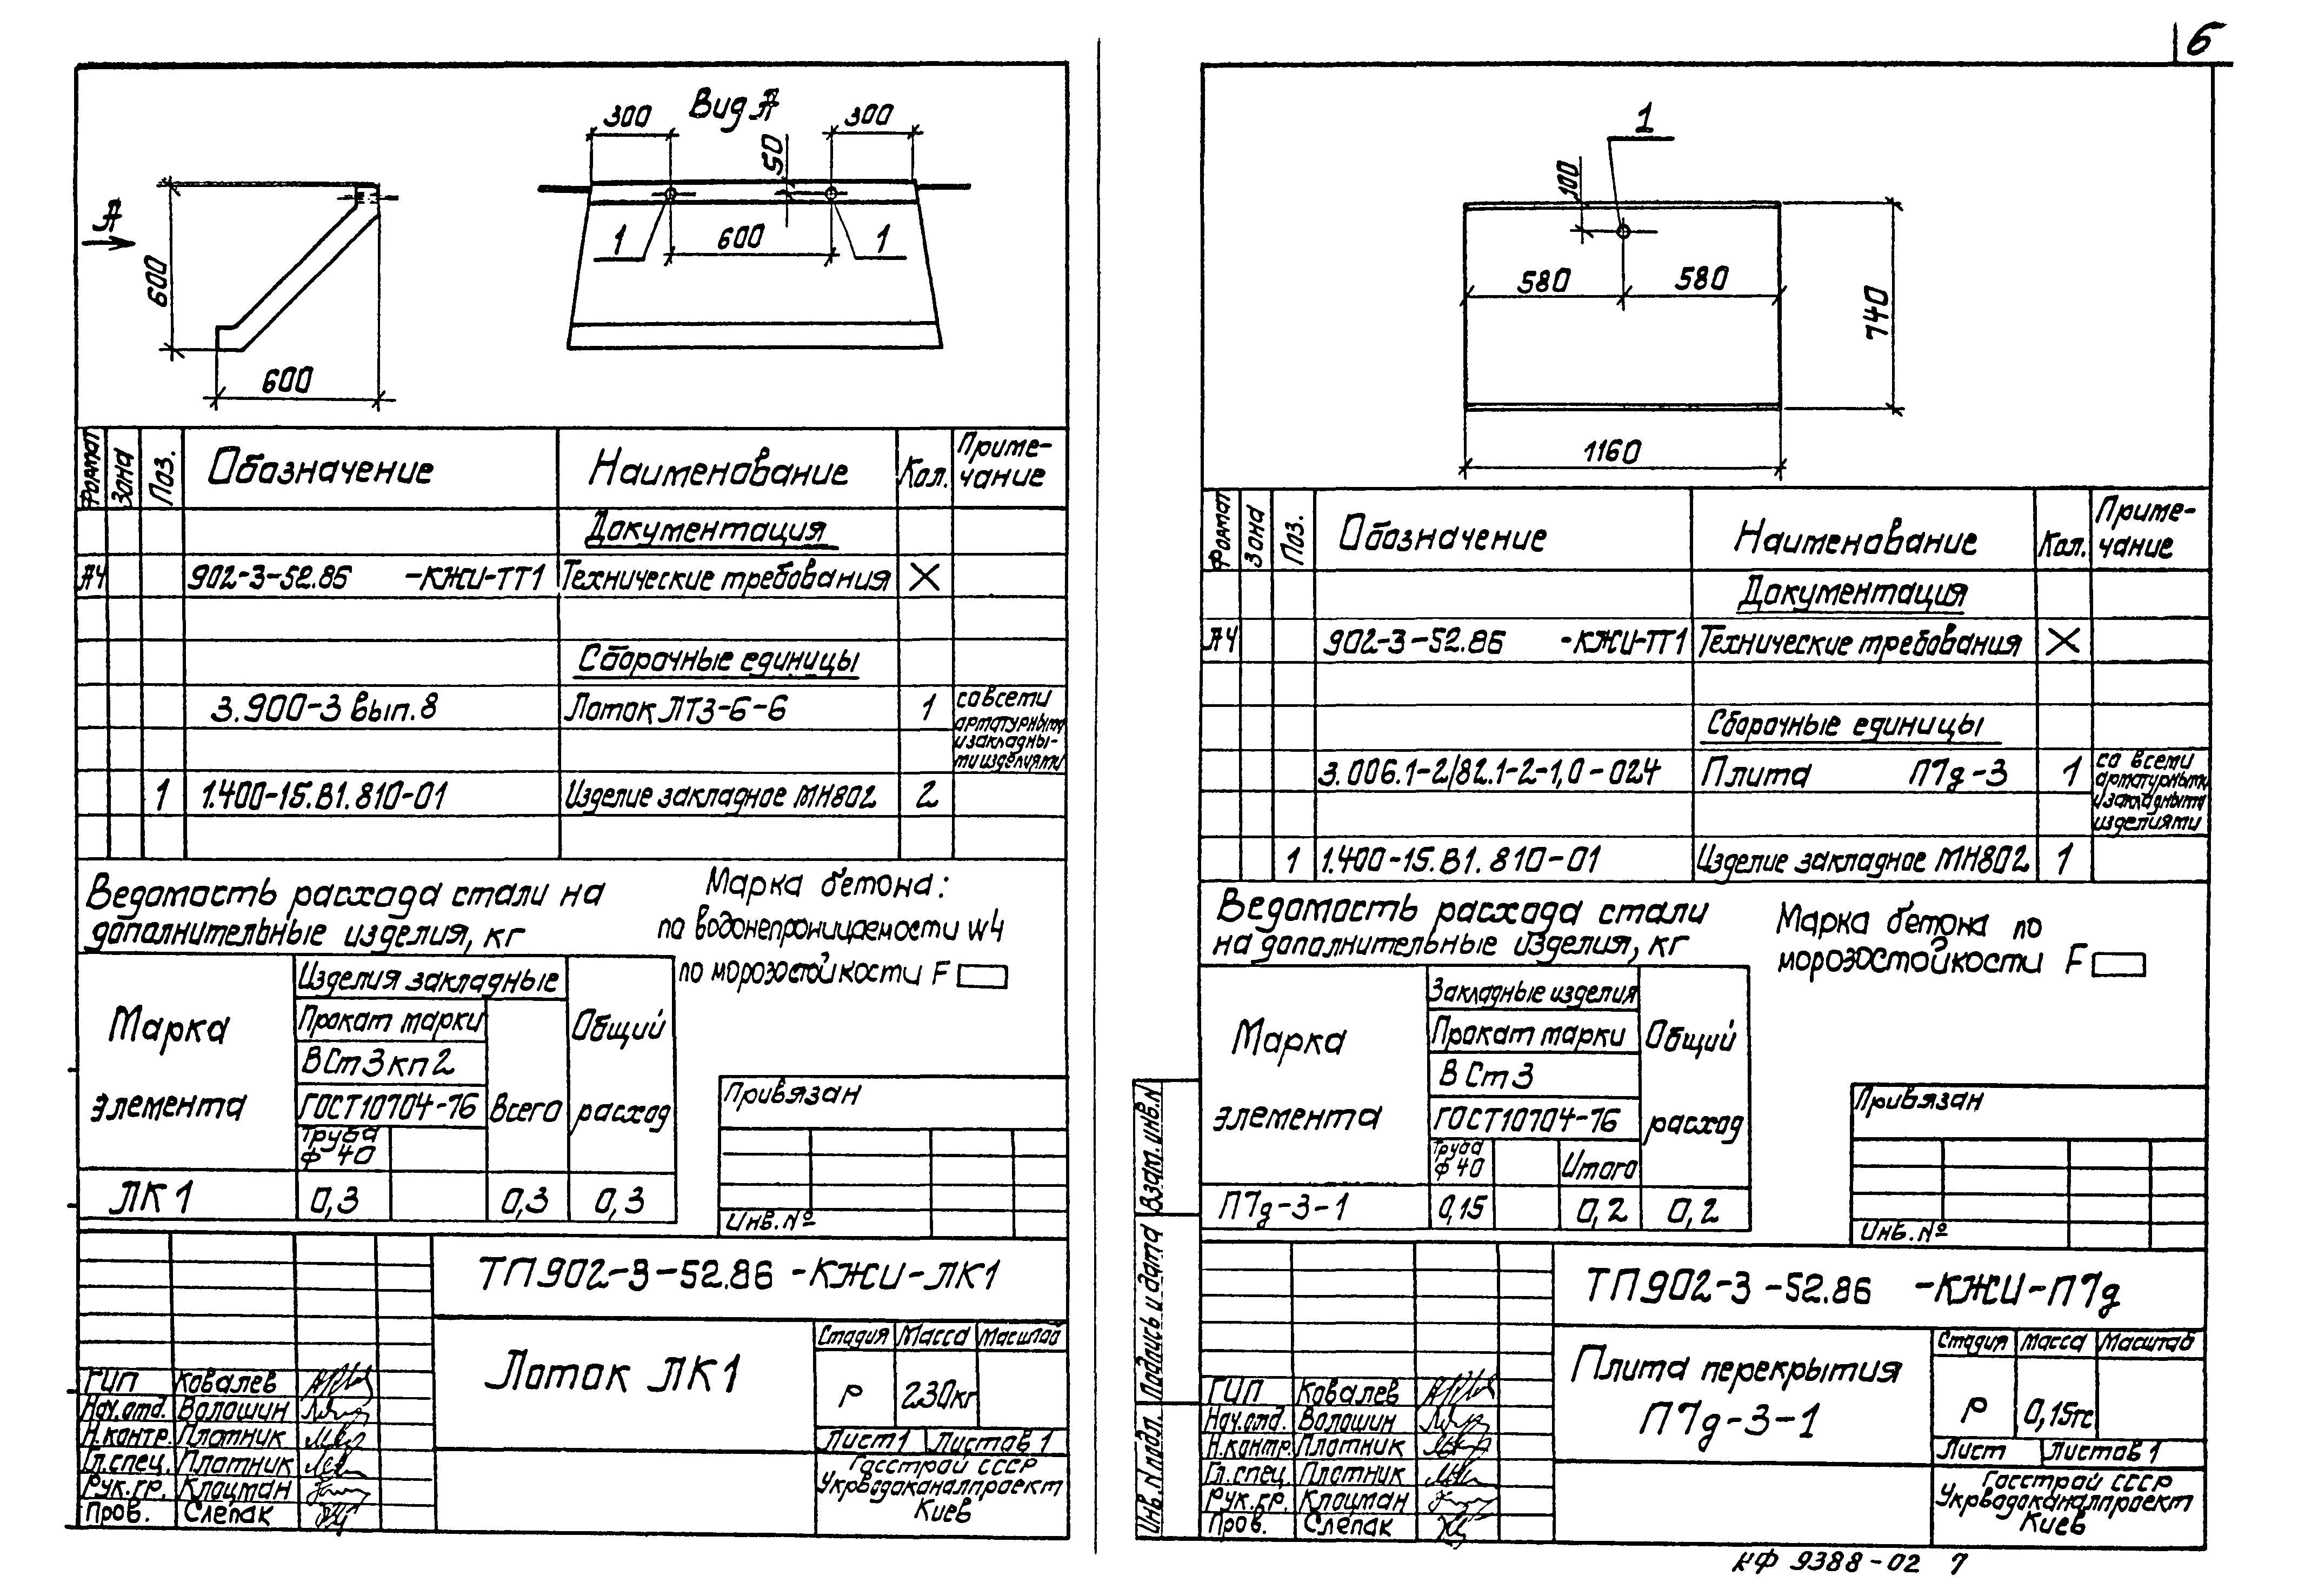 6
Вид А
300
300
50
А
600
600
1
600
1
Формат
Зона
Поз.
Обозначение
Наименование
Кол.
Приме-
чание
Документация
А4 902-3-52.86 -КЖИ-ТТ1 Технические требования X
Сборочные единицы
3.900-3 вып.8 Лоток ЛТ3-6-6 1 со всеми
арматурными
и закладны-
ми изделиями
1 1.400-15.В1.810-01 Изделие закладное МН802 2
Ведомость расхода стали на
дополнительные изделия, кг
Марка бетона:
по водонепроницаемости W4
по морозостойкости F
Марка
элемента
Изделия закладные
Прокат марки
ВСт3кп2
ГОСТ10704-76
Труба
ф 40
Всего
Общий
расход
ЛК1 0,3 0,3 0,3
Привязан
Инв.№
ТП902-3-52.86 -КЖИ-ЛК1
Лоток ЛК1
Стадия Масса Масштаб
Р 230кг
Лист1 Листов 1
Госстрой СССР
Укрводоканалпроект
Киев
ГИП Ковалев
Нач.отд. Волошин
Н.контр. Плотник
Гл.спец. Плотник
Рук.гр. Клоцман
Пров. Слепак
1
100
580
580
740
1160
Формат
Зона
Поз.
Обозначение
Наименование
Кол.
Приме-
чание
Документация
А4 902-3-52.86 -КЖИ-ТТ1 Технические требования X
Сборочные единицы
3.006.1-2/82.1-2-1,0-024 Плита П7д-3 1 со всеми
арматурными
и закладными
изделиями
1 1.400-15.В1.810-01 Изделие закладное МН802 1
Ведомость расхода стали
на дополнительные изделия, кг
Марка бетона по
морозостойкости F
Марка
элемента
Закладные изделия
Прокат марки
ВСт3
ГОСТ10704-76
Труба
ф 40
Итого
Общий
расход
П7д-3-1 0,15 0,2 0,2
Привязан
Инв.№
Взам.инв.N
Подпись и дата
Инв.N подл.
ТП902-3-52.86 -КЖИ-П7д
Плита перекрытия
П7д-3-1
Стадия Масса Масштаб
Р 0,15тс
Лист Листов 1
Госстрой СССР
Укрводоканалпроект
Киев
ГИП Ковалев
Нач.отд. Волошин
Н.контр. Плотник
Гл.спец. Плотник
Рук.гр. Клоцман
Пров. Слепак
КФ 9388-02 7